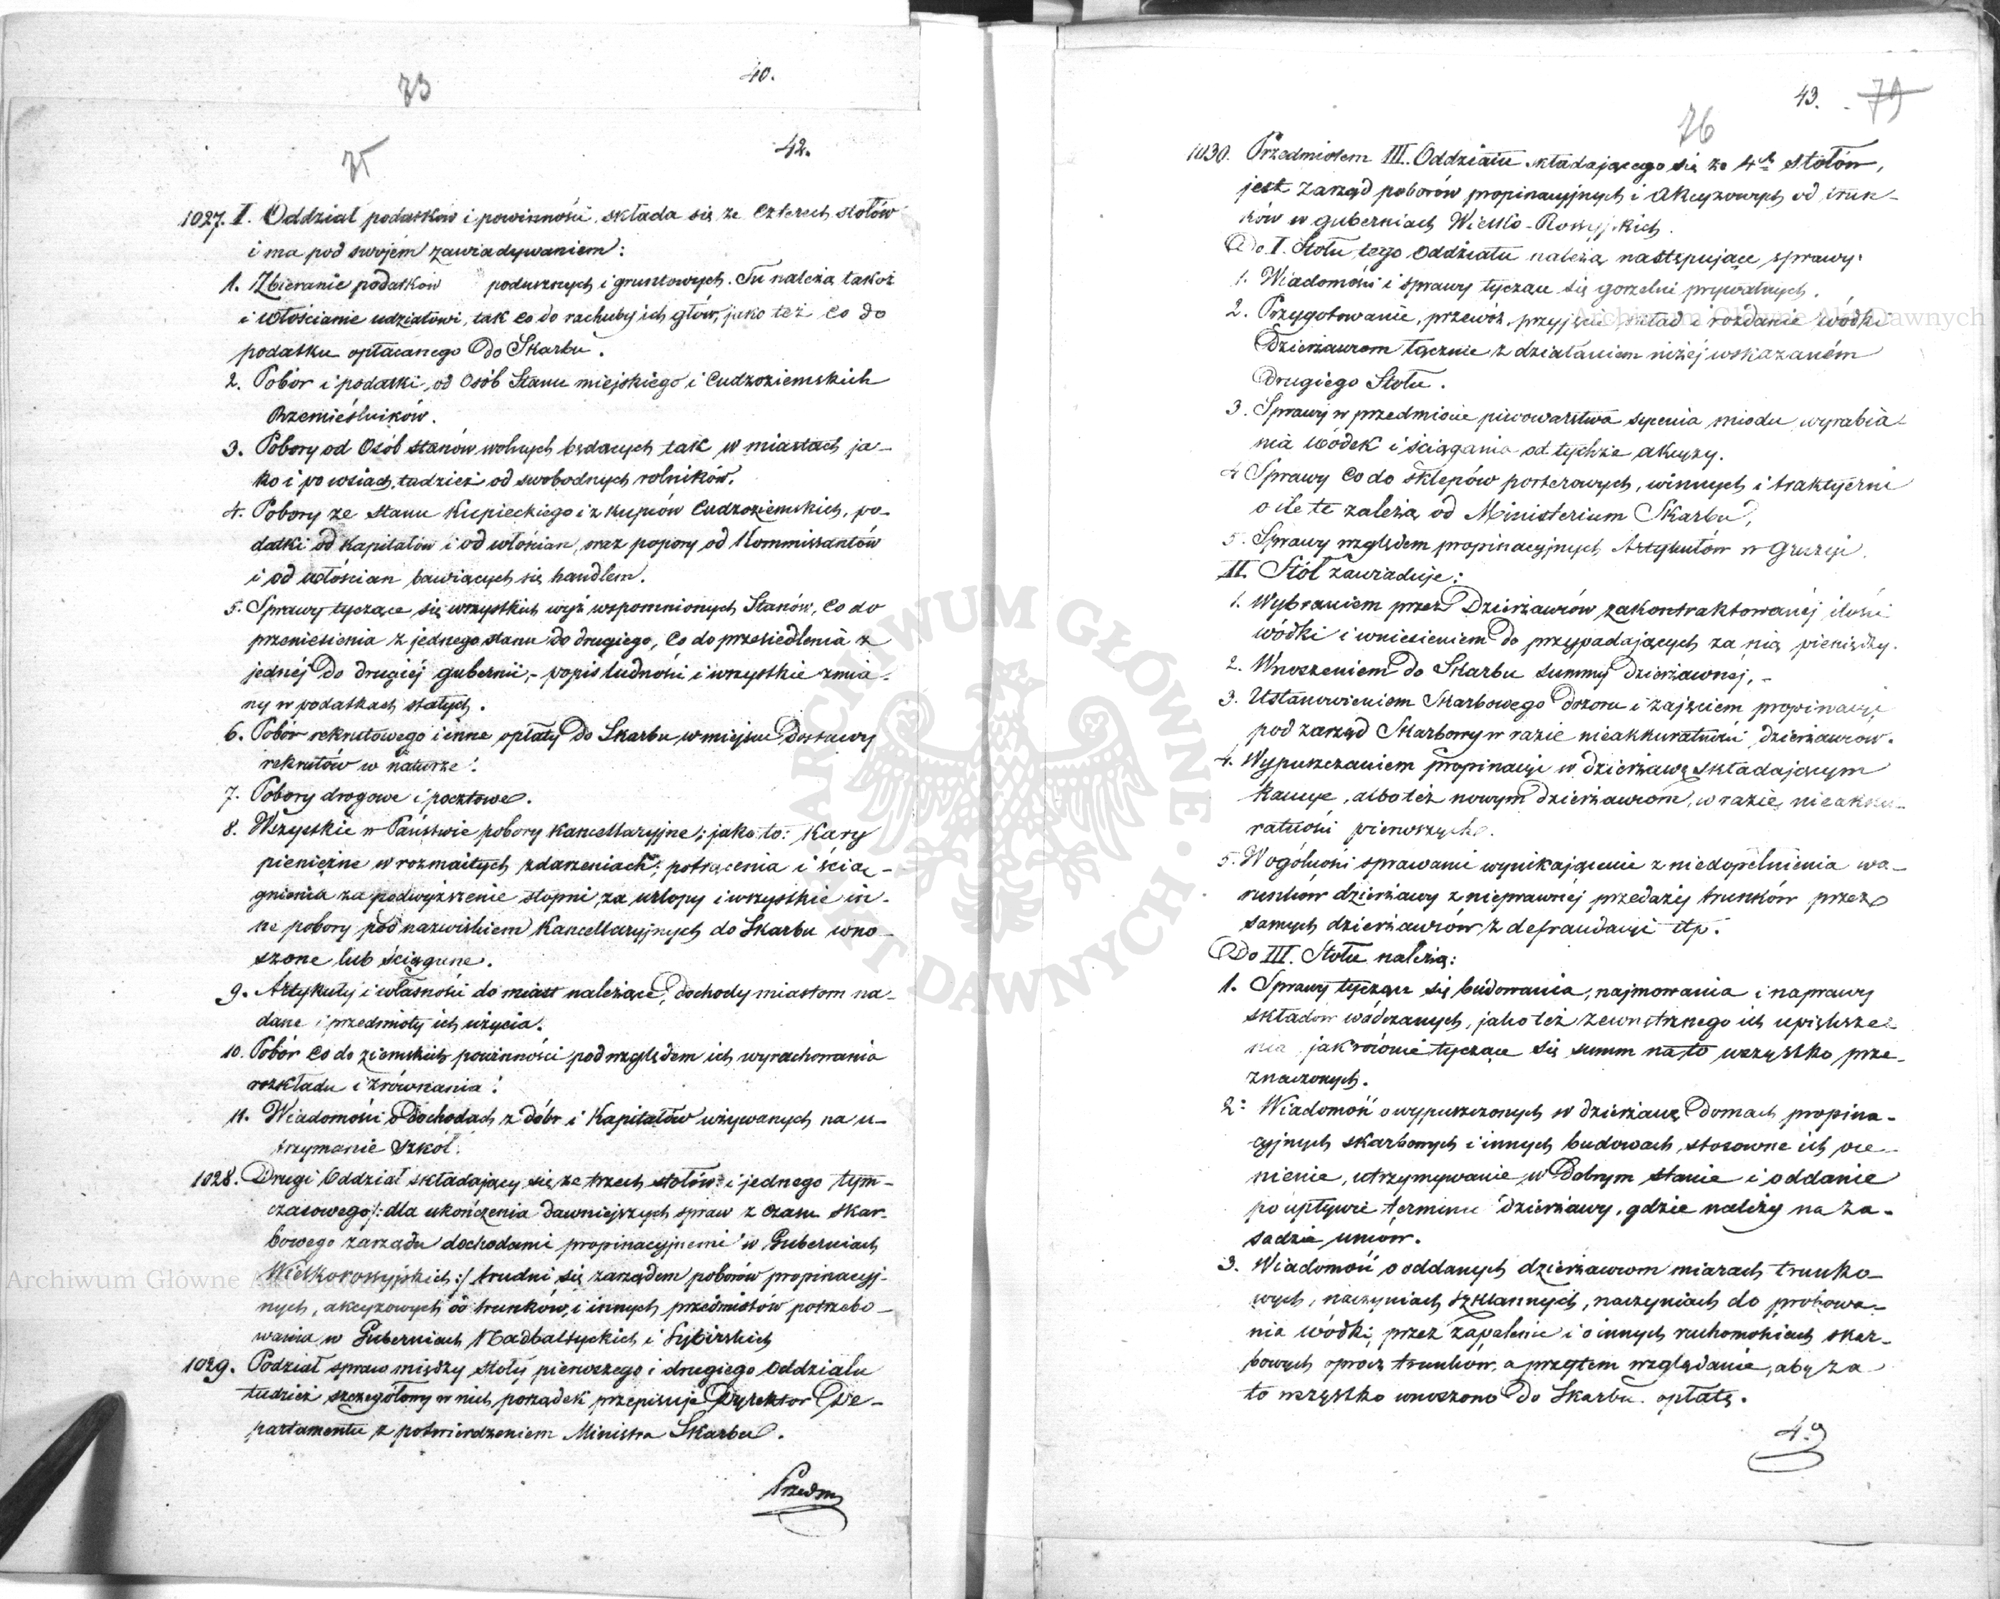 40.
73
42.
75
1027. I. Oddział podatków i powinności składa się ze czterech stołów
i ma pod swojém zawiadywaniem:
1. Zbieranie podatków podusznych i gruntowych. Tu należą także
i włościanie udziałowi, tak co do rachuby ich głów, jako też co do
podatku opłacanego do Skarbu.
2. Pobór i podatki od Osób Stanu miejskiego i Cudzoziemskich
Rzemieślników.
3. Pobory od Osób stanów wolnych będących tak w miastach ja-
ko i po wsiach, tudzież od swobodnych rolników.
4. Pobory ze stanu Kupieckiego i z kupców Cudzoziemskich, po-
datki od kapitałów i od włościan, oraz pobory od Kommissantów
i od włościan bawiących się handlem.
5. Sprawy tyczące się wszystkich wyż wspomnionych Stanów, co do
przeniesienia z jednego stanu do drugiego, co do przesiedlenia z
jednéj do drugiéj gubernii,- popis ludności i wszystkie zmia-
ny w podatkach stałych.
6. Pobór rekrutowego i inne opłaty do Skarbu w miejsce Dostawy
rekrutów w naturze.
7. Pobory drogowe i pocztowe.
8. Wszystkie w Państwie pobory kancellaryjne; jako to: Kary
pieniężne w rozmaitych zdarzeniach; potrącenia i ścią-
gnienia za podwyższenie stopni, za urlopy i wszystkie in-
ne pobory pod nazwiskiem Kancellaryjnych do Skarbu wno-
szone lub ściągane.
9. Artykuły i własności do miast należące, dochody miastom na-
dane i przedmioty ich użycia.
10. Pobór co do ziemskich powinności pod względem ich wyrachowania
rozkładu i zrównania.
11. Wiadomości o dochodach z dóbr i Kapitałów używanych na u-
trzymanie Szkół.
1028. Drugi Oddział składający się ze trzech stołów i jednego tym-
czasowego /: dla ukończenia dawniejszych spraw z czasu skar-
bowego zarządu dochodami propinacyjnemi w Guberniach
Wielkorossyjskich :/ trudni się zarządem poborów propinacyj-
nych, akcyzowych od trunków, i innych przedmiotów potrzebo-
wania w Guberniach Nadbałtyckich i Sybirskich
1029. Podział spraw między stoły pierwszego i drugiego Oddziału
tudzież szczegółowy w nich porządek przepisuje Dyrektor De-
partamentu z potwierdzeniem Ministra Skarbu.
Przedm
43.
79
76
1030. Przedmiotem III. Oddziału składającego się ze 4ch stołów,
jest zarząd poborów propinacyjnych i akcyzowych od trun-
ków w guberniach Wielko-Rossyjskich.
Do I. Stołu tego Oddziału należą następujące sprawy:
1. Wiadomości i sprawy tyczące się gorzelni prywatnych.
2. Przygotowanie, przewóz, przyjęcie, skład i rozdanie wódki
Dzierżawcom łącznie z działaniem niżéj wskazaném
Drugiego Stołu.
3. Sprawy w przedmiocie piwowarstwa sycenia miodu, wyrabia-
nia wódek i ściągania od tychże akcyzy.
4. Sprawy co do sklepów porterowych, winnych i traktyerni
o ile te zależą od Ministerium Skarbu,
5. Sprawy względem propinacyjnych Artykułów w Gruzyi.
II. Stół zawiaduje:
1. Wybraniem przez Dzierżawców zakontraktowanéj ilości
wódki i wniesieniem do przypadających za nią pieniędzy.
2. Wnoszeniem do Skarbu summy dzierżawnéj,-
3. Ustanowieniem Skarbowego dozoru i zajęciem propinacyi
pod zarząd Skarbowy w razie nieakkuratności dzierżawców.
4. Wypuszczaniem propinacyi w dzierżawę składającym
kaucye, albo też nowym dzierżawcom, w razie nieakku-
ratności pierwszych.
5. W ogólności sprawami wynikającemi z niedopełnienia wa-
runków dzierżawy z nieprawnéj przedaży trunków przez
samych dzierżawców z defraudacyi itp.
Do III. Stołu należą:
1. Sprawy tyczące się budowania, najmowania i naprawy
składów wódczanych, jako też zewnętrznego ich upiększe-
nia, jak równie tyczące się summ na to wszystko prze-
znaczonych.
2. Wiadomość o wypuszczonych w dzierżawę domach propina-
cyjnych skarbowych i innych budowach, stosowne ich oce-
nienie, utrzymywanie w Dobrym stanie i oddanie
po upływie terminu dzierżawy, gdzie należy na za-
sadzie umów.
3. Wiadomość o oddanych dzierżawcom miarach trunko-
wych, naczyniach szklannych, naczyniach do probowa-
nia wódki przez zapalenie i o innych ruchomościach skar-
bowych oprócz trunków, a przytem względanie, aby za
to wszystko wnoszono do Skarbu opłatę.
4.)
Archiwum Główne Akt Dawnych
ARCHIWUM GŁÓWNE • AKT DAWNYCH •